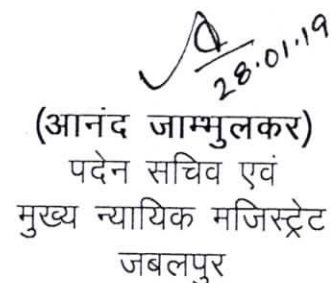 28.01.19
(आनंद जाम्भुलकर)
पदेन सचिव एवं
मुख्य न्यायिक मजिस्ट्रेट
जबलपुर